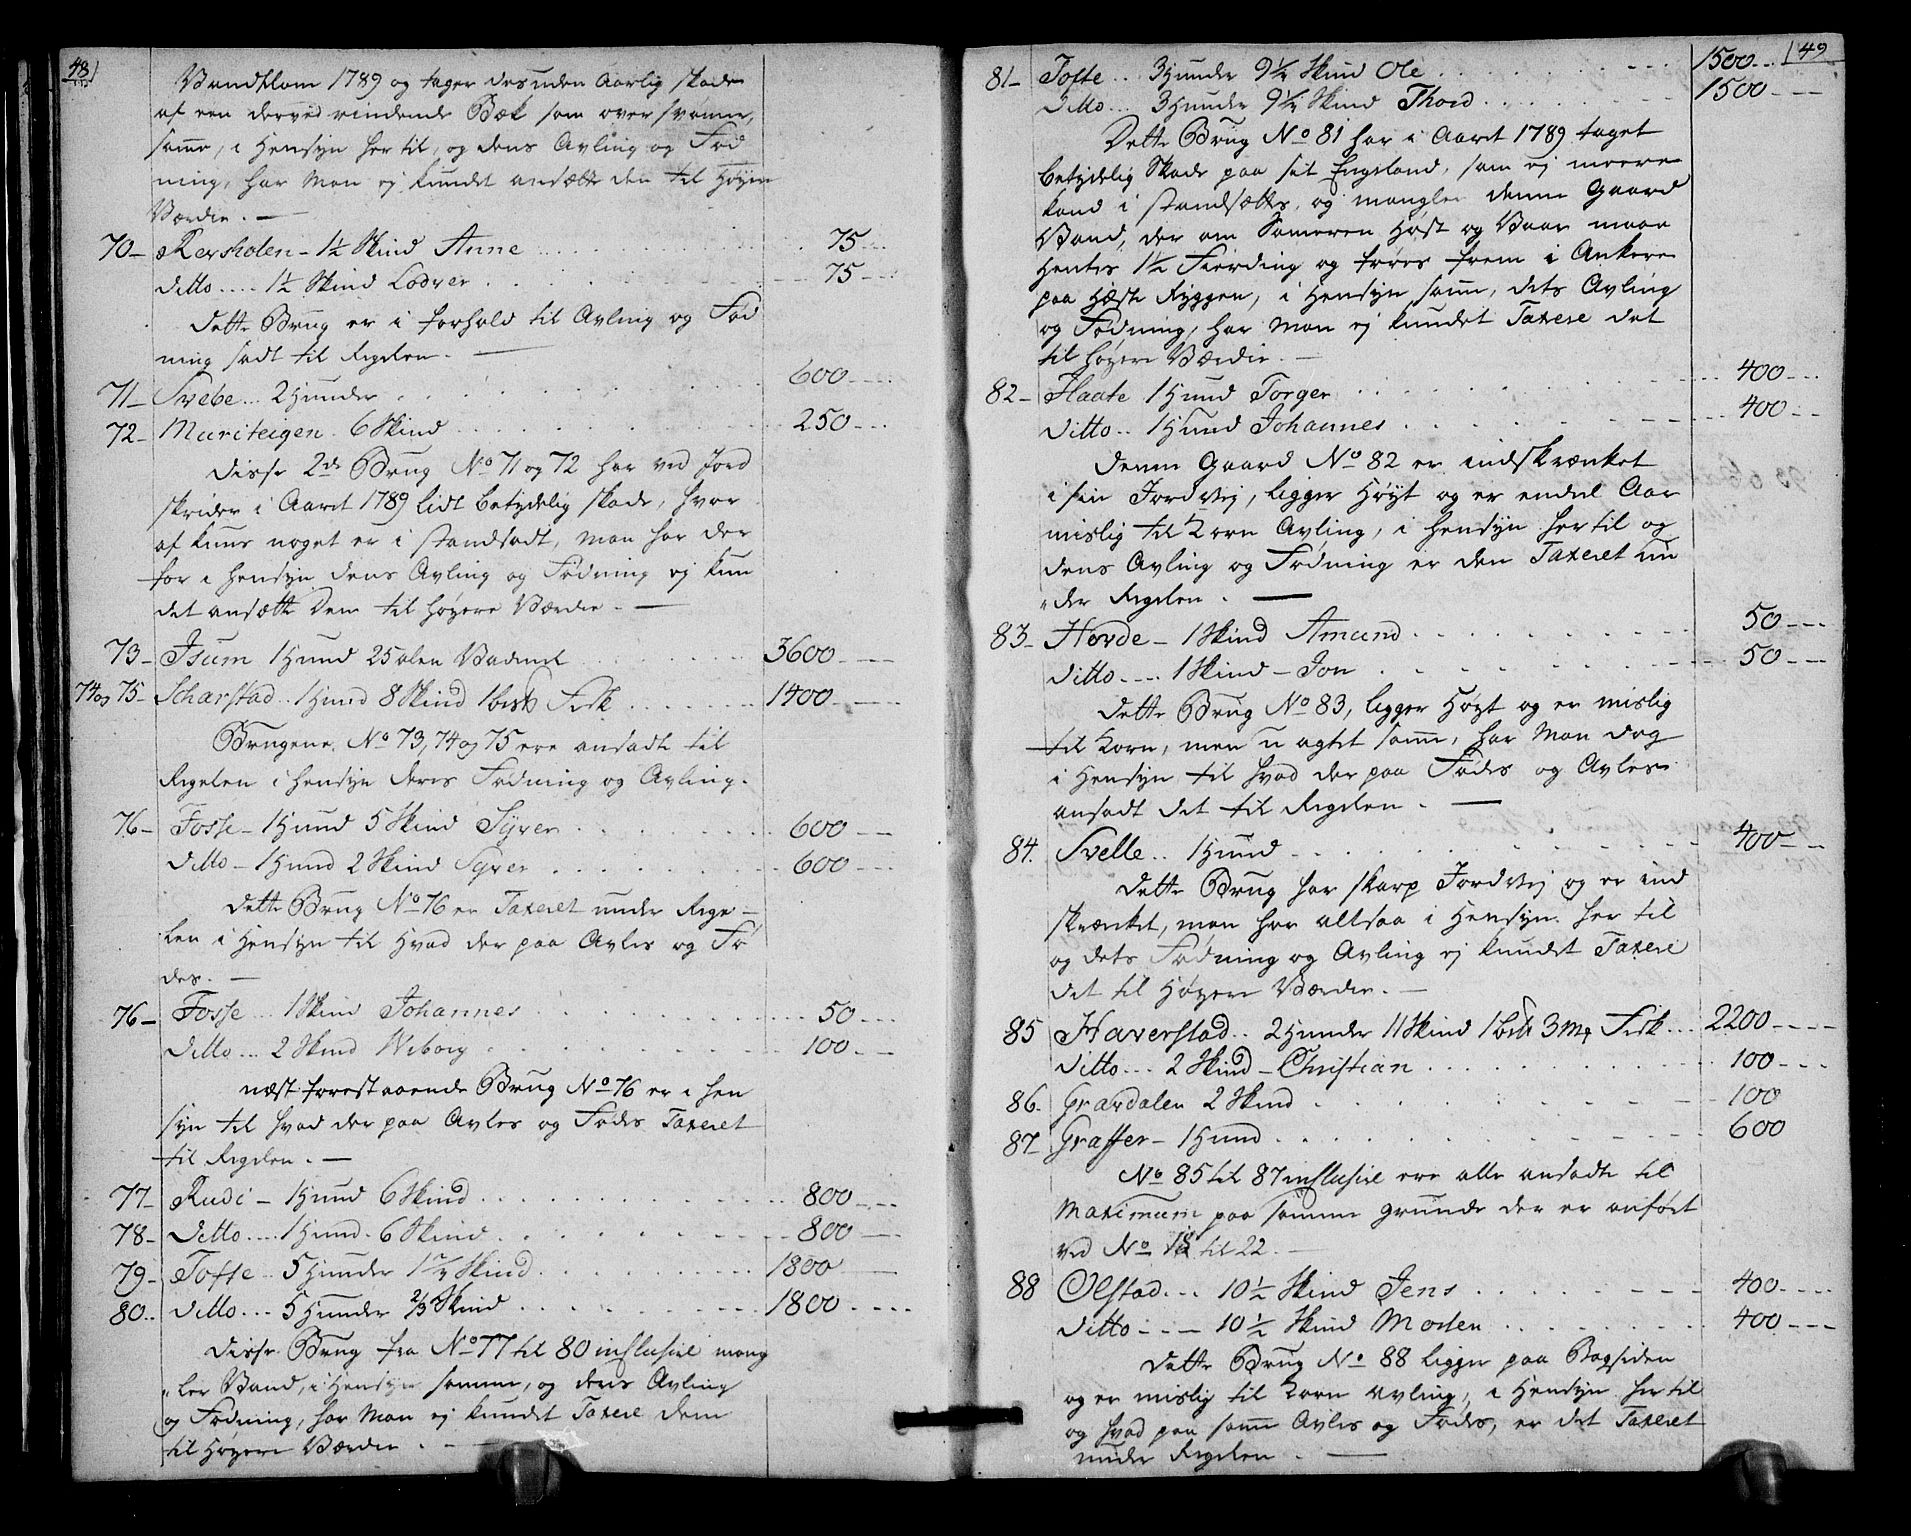 48
Vandflom 1789 og tager desuden Aarlig skade
af een derved rindende Bæk som oversvømer,
samme, i Hensyn hertil, og dens Avling og Fød
ning, har Man ej kundet ansætte den til høyere
Værdie. —
70 - Revsholen - 1½ Skind Anne . . . 75 - -
Ditto .... 1½ Skind Lodver . . . 75 - -
Dette Brug er i forhold til Avling og Fød
ning sadt til Regelen. —
71 - Svebe ... 2 Hunder . . . 600 - -
72 - Muriteigen . 6 Skind . . . 250 - -
Disse 2de Brug No 71 og 72 har ved Jord
skrider i Aaret 1789 lidt betydelig skade, hvor
af kuns noget er i standsadt, man har der
for i hensyn dens Avling og Fødning ej kun
det ansætte Dem til høyere Værdie. —
73 - Isum 1 Hund 25 alen Vadmel . . . 3600 - -
74 og 75 - Scharstad .. 1 Hund 8 Skind 1 bsk Fisk . . . 1400 - -
Brugene No 73, 74 og 75 ere ansadte til
Regelen i hensyn deres Fødning og Avling.
76 - Fosse - 1 Hund 5 Skind Syver . . . 600 - -
Ditto - 1 Hund 2 Skind Syver . . . 600 - -
Dette Brug No 76 er Taxeret under Rege-
len i Hensyn til Hvad der paa Avles og Fø
des. —
76 - Fosse ... 1 Skind Johannes . . . 50 - -
Ditto ... 2 Skind Wiborg . . . 100 - -
næst forestaaende Brug No 76 er i hen
syn til hvad der paa Avles og Fødes Taxeret
til Regelen. —
77 - Rudi - 1 Hund 6 Skind . . . 800 - -
78 - Ditto .... 1 Hund . 6 Skind . . . 800 - -
79 - Tofte .. 5 Hunder 1 ½ Skind . . . 1800
80 .. Ditto ... 5 Hunder 2/3 Skind . . . 1800 - -
Disse Brug fra No 77 til 80 inclusive mang
ler Vand, i Hensyn samme, og dens Avling
og Fødning, har Man ej kundet Taxere dem
til Høyere Værdie. —
49
81 - Tofte .. 3 Hunder 9½ Skind Ole . . . 1500 - -
Ditto ... 3 Hunder 9½ Skind Thord . . . 1500 - -
Dette Brug No 81 har i Aaret 1789 taget
betydelig Skade paa sit Engeland, som ej meere
kand i standsættes, og mangler denne Gaard
Vand, der om Someren Høst og Vaar maae
Hentes 1½ Fierding og føres frem i Ankere
paa Hæste Ryggen, i Hensyn samme, dets Avling
og Fødning, har Man ej kundet Taxere det
til høyere Værdie. —
82 - Haate 1 Hund Torger . . . 400 - -
Ditto .. 1 Hund Johannes . . . 400 - -
Denne Gaard No 82 er indskrænket
i sin Jordvej, ligger Høyt og er endeel Aar
mislig til Korn Avling, i hensyn hertil og
dens Avling og Fødning er den Taxeret un
der Regelen. —
83 - Hovde - 1 Skind Amund . . . 50 - -
Ditto .... 1 Skind - Jon . . . 50 - -
Dette Brug No 83, ligger Høyt og er mislig
til Korn, men u agtet samme, har Man dog
i Hensyn til hvad der paa Fødes og Avles
ansadt det til Regelen. —
84. Svelle .. 1 Hund . . . 400 - -
Dette Brug har skarp Jordvej og er ind
skrænket, man har altsaa i Hensyn hertil
og dets Fødning og Avling ej kundet Taxere
det til Høyere Værdie. —
85 Haverstad .. 2 Hunder 11 Skind 1 bsk 3 Mk Fisk ... 2200 - -
Ditto ... 2 Skind - Christian . . . 100 - -
86 - Gravdalen 2 Skind . . . 100
87 - Graffer - 1 Hund . . . 600
No 85 til 87 inclusive ere alle ansadte til
Maximum paa samme grunde der er anført
ved No 18 til 22. —
88 Olstad ... 10½ Skind Jens . . . 400 - -
Ditto - - - 10½ Skind Morten . . . 400 - -
Dette Brug No 88 ligger paa Bagsiden
og er mislig til Korn avling, i Hensyn hertil
og hvad paa samme Avles og Fødes, er det Taxeret
under Regelen. —